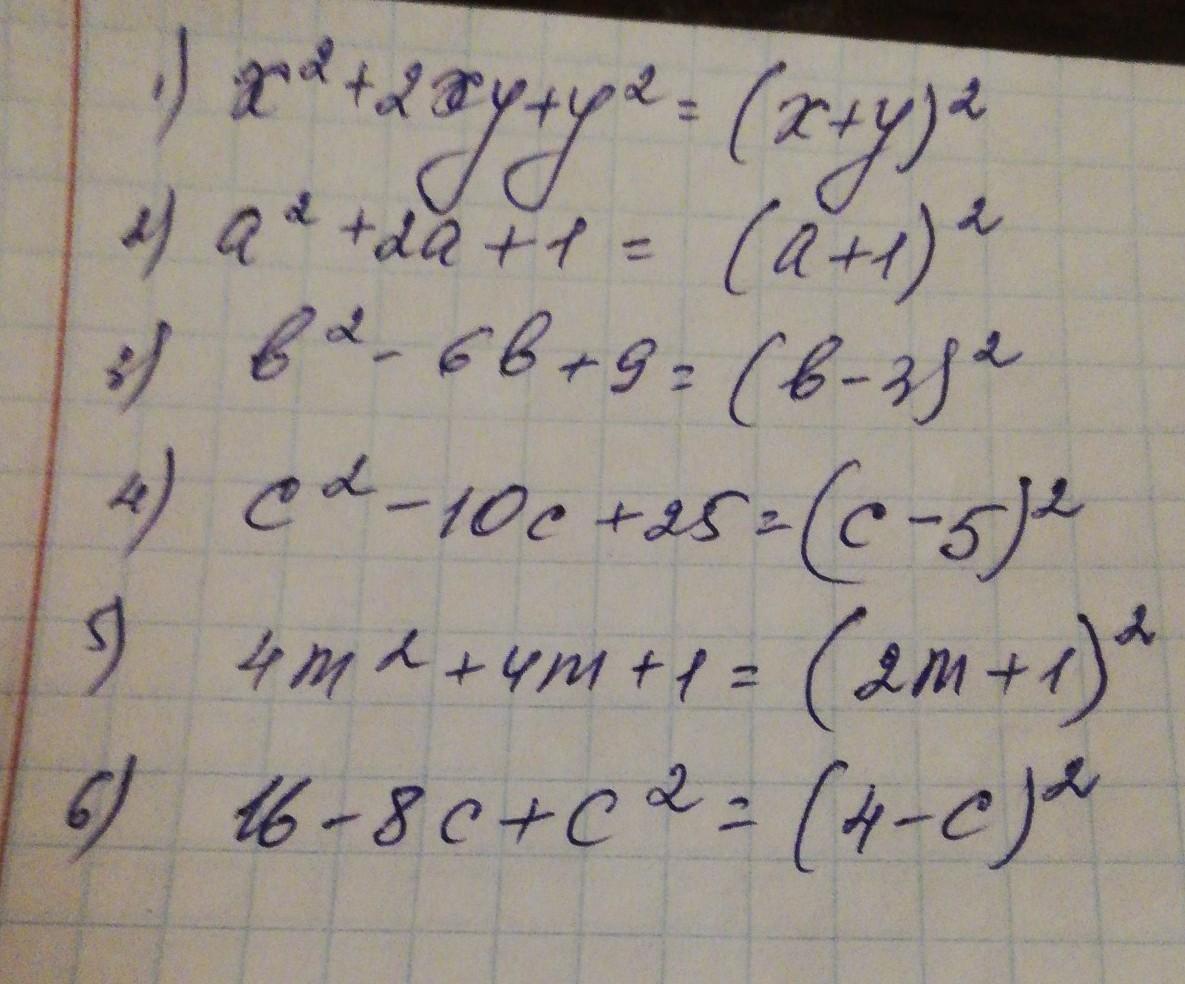 1) x² + 2xy + y² = (x+y)²
2) a² + 2a + 1 = (a+1)²
3) в² - 6в + 9 = (в - 3)²
4) c² - 10c + 25 = (c - 5)²
5) 4m² + 4m + 1 = (2m + 1)²
6) 16 - 8c + c² = (4 - c)²